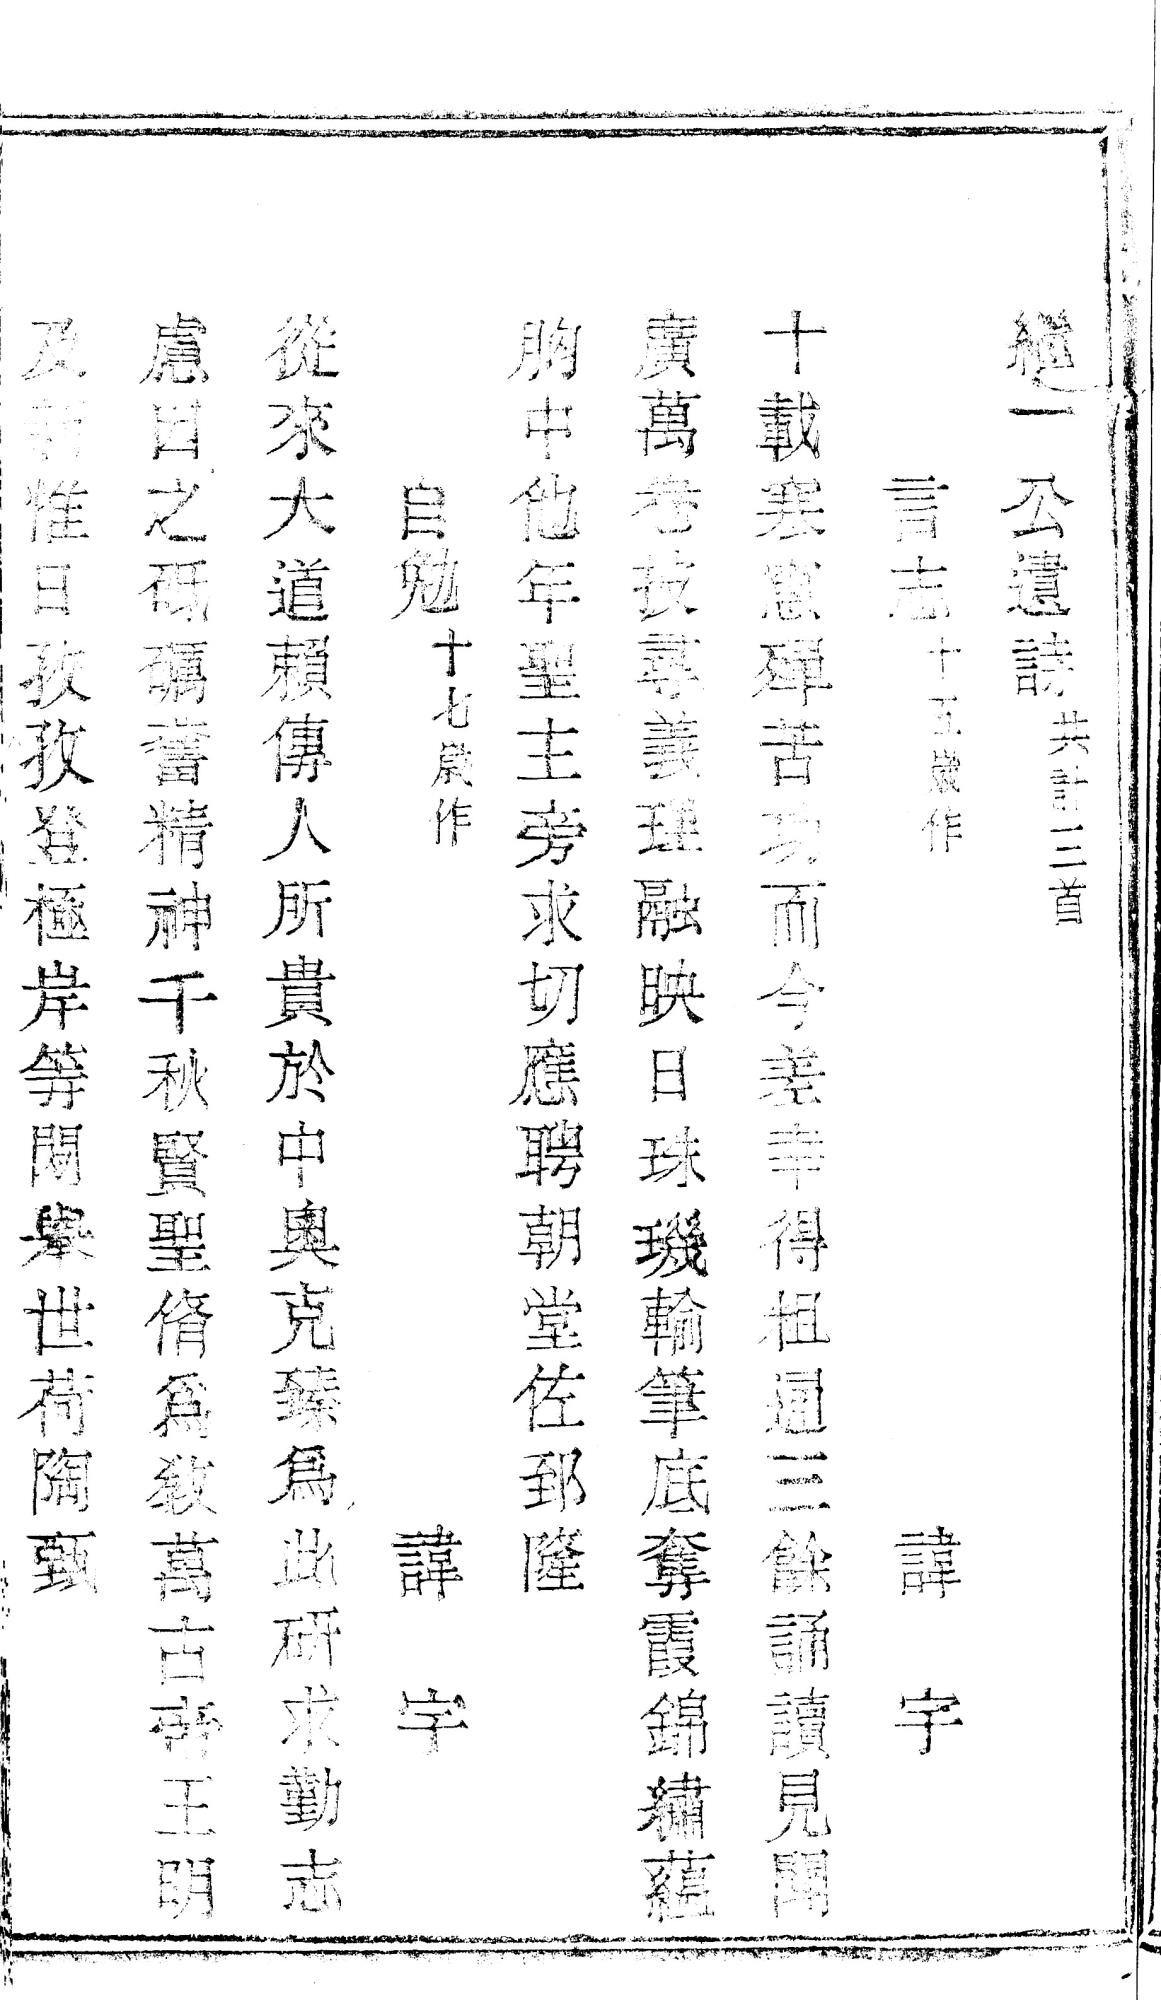 繼一公遺詩共計三首
言志十五歲作 諱 字
十載寒窻殫苦功而今差幸得粗通三餘誦讀見聞
廣萬卷披尋義理融映日珠璣輸筆底奪霞錦繡蘊
胸中他年聖主旁求切應聘朝堂佐郅隆
自勉十七歲作 諱 字
從來大道賴傳人所貴於中奧克臻爲此研求勤志
慮因之砥礪奮精神千秋賢聖脩爲教萬古帝王明
及新惟日孜孜登極岸等閒舉世荷陶甄